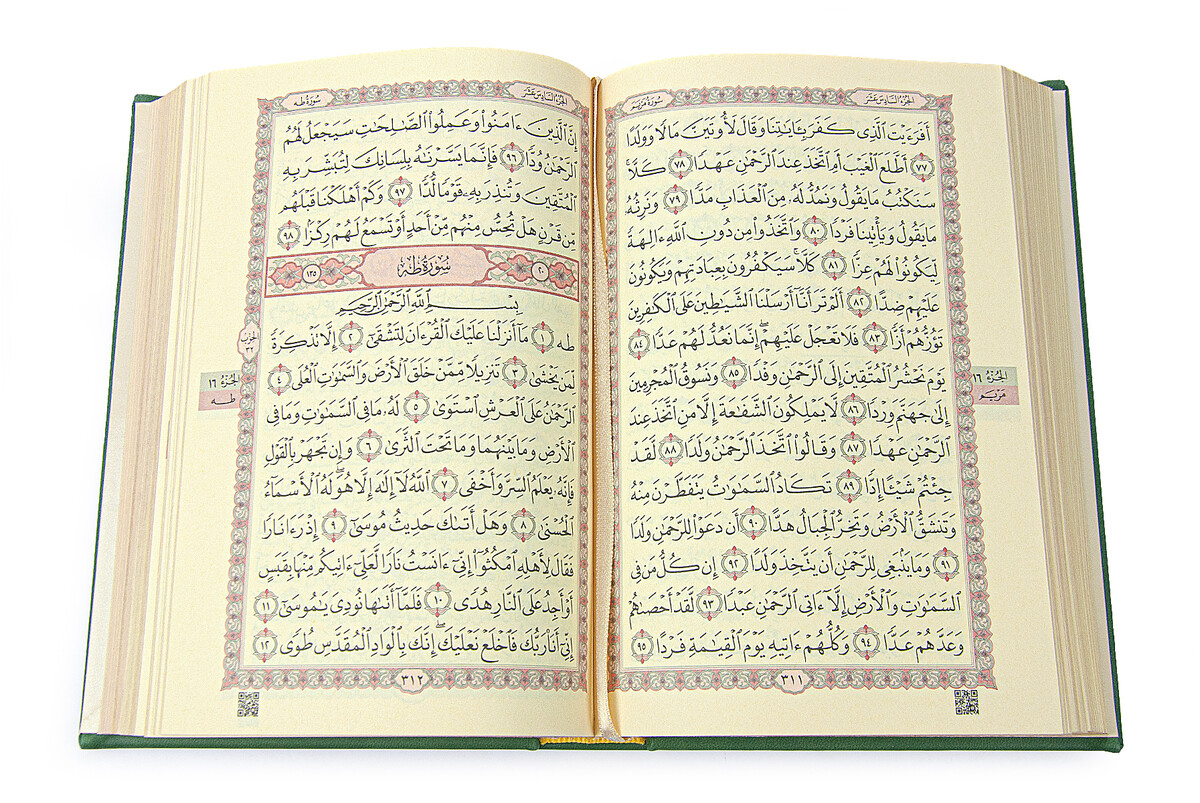 سُورَةُ مَرْيَم
الجُزْءُ السَّادِسَ عَشَرَ
أَفَرَءَيْتَ ٱلَّذِى كَفَرَ بِـَٔايَٰتِنَا وَقَالَ لَأُوتَيَنَّ مَالًا وَوَلَدًا
٧٧ أَطَّلَعَ ٱلْغَيْبَ أَمِ ٱتَّخَذَ عِندَ ٱلرَّحْمَٰنِ عَهْدًا ٧٨ كَلَّا ۚ
سَنَكْتُبُ مَا يَقُولُ وَنَمُدُّ لَهُۥ مِنَ ٱلْعَذَابِ مَدًّا ٧٩ وَنَرِثُهُۥ
مَا يَقُولُ وَيَأْتِينَا فَرْدًا ٨٠ وَٱتَّخَذُوا۟ مِن دُونِ ٱللَّهِ ءَالِهَةً
لِّيَكُونُوا۟ لَهُمْ عِزًّا ٨١ كَلَّا ۚ سَيَكْفُرُونَ بِعِبَادَتِهِمْ وَيَكُونُونَ
عَلَيْهِمْ ضِدًّا ٨٢ أَلَمْ تَرَ أَنَّآ أَرْسَلْنَا ٱلشَّيَٰطِينَ عَلَى ٱلْكَٰفِرِينَ
تَؤُزُّهُمْ أَزًّا ٨٣ فَلَا تَعْجَلْ عَلَيْهِمْ ۖ إِنَّمَا نَعُدُّ لَهُمْ عَدًّا ٨٤
يَوْمَ نَحْشُرُ ٱلْمُتَّقِينَ إِلَى ٱلرَّحْمَٰنِ وَفْدًا ٨٥ وَنَسُوقُ ٱلْمُجْرِمِينَ
إِلَىٰ جَهَنَّمَ وِرْدًا ٨٦ لَّا يَمْلِكُونَ ٱلشَّفَٰعَةَ إِلَّا مَنِ ٱتَّخَذَ عِندَ
ٱلرَّحْمَٰنِ عَهْدًا ٨٧ وَقَالُوا۟ ٱتَّخَذَ ٱلرَّحْمَٰنُ وَلَدًا ٨٨ لَّقَدْ
جِئْتُمْ شَيْـًٔا إِدًّا ٨٩ تَكَادُ ٱلسَّمَٰوَٰتُ يَتَفَطَّرْنَ مِنْهُ
وَتَنشَقُّ ٱلْأَرْضُ وَتَخِرُّ ٱلْجِبَالُ هَدًّا ٩٠ أَن دَعَوْا۟ لِلرَّحْمَٰنِ وَلَدًا
٩١ وَمَا يَنۢبَغِى لِلرَّحْمَٰنِ أَن يَتَّخِذَ وَلَدًا ٩٢ إِن كُلُّ مَن فِى
ٱلسَّمَٰوَٰتِ وَٱلْأَرْضِ إِلَّآ ءَاتِى ٱلرَّحْمَٰنِ عَبْدًا ٩٣ لَّقَدْ أَحْصَىٰهُمْ
وَعَدَّهُمْ عَدًّا ٩٤ وَكُلُّهُمْ ءَاتِيهِ يَوْمَ ٱلْقِيَٰمَةِ فَرْدًا ٩٥
٣١١
الجُزْءُ ١٦
مَرْيَم
الجُزْءُ السَّادِسَ عَشَرَ
سُورَةُ طه
إِنَّ ٱلَّذِينَ ءَامَنُوا۟ وَعَمِلُوا۟ ٱلصَّٰلِحَٰتِ سَيَجْعَلُ لَهُمُ
ٱلرَّحْمَٰنُ وُدًّا ٩٦ فَإِنَّمَا يَسَّرْنَٰهُ بِلِسَانِكَ لِتُبَشِّرَ بِهِ
ٱلْمُتَّقِينَ وَتُنذِرَ بِهِۦ قَوْمًا لُّدًّا ٩٧ وَكَمْ أَهْلَكْنَا قَبْلَهُم
مِّن قَرْنٍ هَلْ تُحِسُّ مِنْهُم مِّنْ أَحَدٍ أَوْ تَسْمَعُ لَهُمْ رِكْزًۢا ٩٨
٢٠ سُورَةُ طه ١٣٥
بِسْمِ ٱللَّهِ ٱلرَّحْمَٰنِ ٱلرَّحِيمِ
طه ١ مَآ أَنزَلْنَا عَلَيْكَ ٱلْقُرْءَانَ لِتَشْقَىٰٓ ٢ إِلَّا تَذْكِرَةً
لِّمَن يَخْشَىٰ ٣ تَنزِيلًا مِّمَّنْ خَلَقَ ٱلْأَرْضَ وَٱلسَّمَٰوَٰتِ ٱلْعُلَى ٤
ٱلرَّحْمَٰنُ عَلَى ٱلْعَرْشِ ٱسْتَوَىٰ ٥ لَهُۥ مَا فِى ٱلسَّمَٰوَٰتِ وَمَا فِى
ٱلْأَرْضِ وَمَا بَيْنَهُمَا وَمَا تَحْتَ ٱلثَّرَىٰ ٦ وَإِن تَجْهَرْ بِٱلْقَوْلِ
فَإِنَّهُۥ يَعْلَمُ ٱلسِّرَّ وَأَخْفَى ٧ ٱللَّهُ لَآ إِلَٰهَ إِلَّا هُوَ ۖ لَهُ ٱلْأَسْمَآءُ
ٱلْحُسْنَىٰ ٨ وَهَلْ أَتَىٰكَ حَدِيثُ مُوسَىٰٓ ٩ إِذْ رَءَا نَارًا
فَقَالَ لِأَهْلِهِ ٱمْكُثُوٓا۟ إِنِّىٓ ءَانَسْتُ نَارًا لَّعَلِّىٓ ءَاتِيكُم مِّنْهَا بِقَبَسٍ
أَوْ أَجِدُ عَلَى ٱلنَّارِ هُدًى ١٠ فَلَمَّآ أَتَىٰهَا نُودِىَ يَٰمُوسَىٰٓ ١١
إِنِّىٓ أَنَا۠ رَبُّكَ فَٱخْلَعْ نَعْلَيْكَ ۖ إِنَّكَ بِٱلْوَادِ ٱلْمُقَدَّسِ طُوًى ١٢
٣١٢
الحِزْب
٣٢
الجُزْءُ ١٦
طه